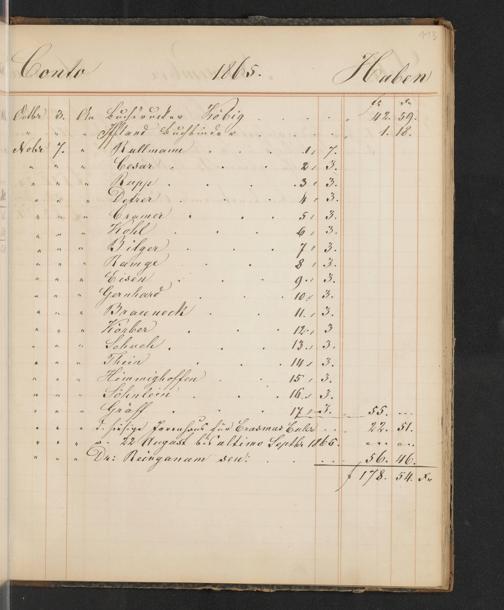 113
Conto 1865. Haben
fl xr
Octbr 3. An Buchdrucker Köbig . . . 42. 59.
" " " Iffland Buchbinder . . . 1. 18.
Novbr 7. " Kullmann . . 1. 7.
" " " Cesar . . 2. 3.
" " " Rapp . . 3. 3.
" " " Detzer . . 4. 3.
" " " Cramer . . 5. 3.
" " " Kohl . . 6. 3.
" " " Bilger . . 7. 3.
" " " Ramge . . 8. 3.
" " " Eisen . . 9. 3.
" " " Gernhard . . 10. 3.
" " " Brauneck . . 11. 3.
" " " Körber . . 12. 3.
" " " Schuch . . 13. 3.
" " " Thein . . 14. 3.
" " " Himmighoffen . 15. 3.
" " " Söhnlein . . 16. 3.
" " " Gräff . . 17. 3. 55. "
" " " hiesige Irrenhaus für Erasmus . . 22. 51.
" " " v. 22 August bis ultimo Septbr 1865.
" " " Dr: Reinganum sen: . . . 56. 46.
f 178. 54. xr